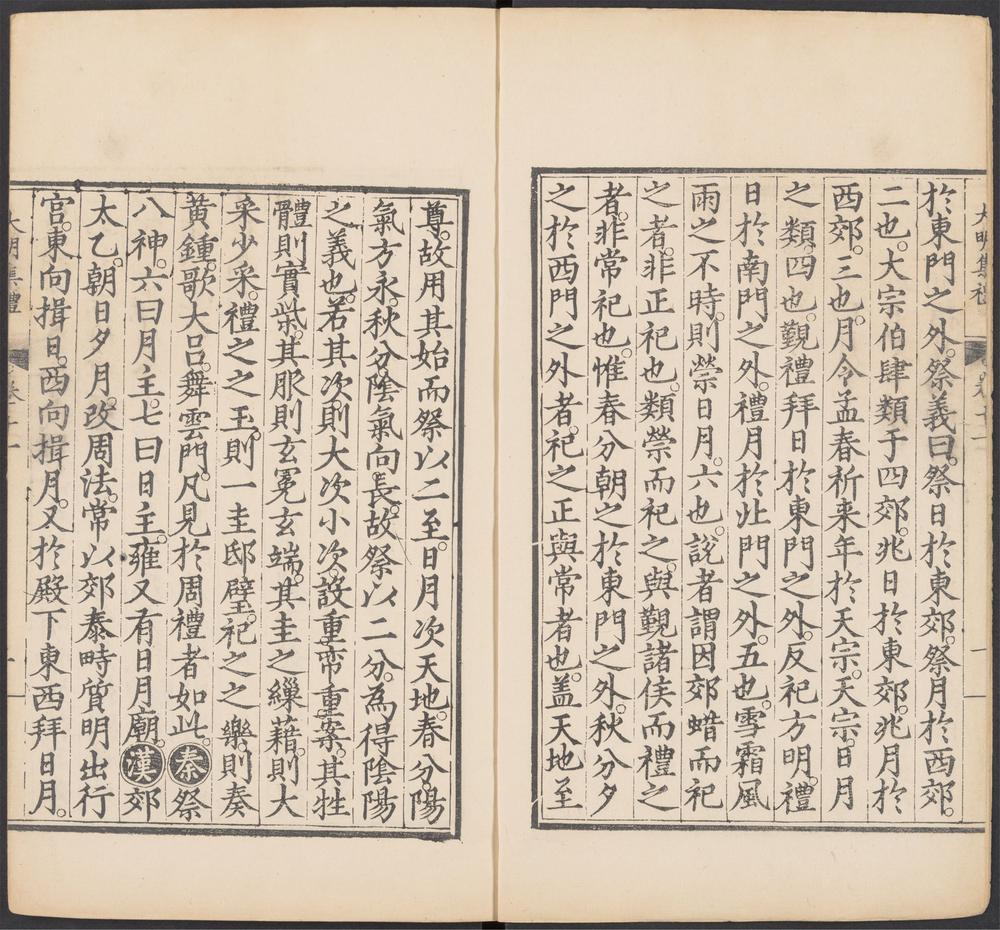 於東門之外。祭義曰。祭日於東郊。祭月於西郊。
二也。大宗伯肆類于四郊。兆日於東郊。兆月於
西郊。三也。月令孟春祈来年於天宗。天宗。日月
之類。四也。覲禮拜日於東門之外。反祀方明。禮
日於南門之外。禮月於北門之外。五也。雪霜風
雨之不時。則禜日月。六也。說者謂因郊蜡而祀
之者。非正祀也。類禜而祀之。與覲諸侯而禮之
者。非常祀也。惟春分朝之於東門之外。秋分夕
之於西門之外者。祀之正與常者也。盖天地至
尊。故用其始而祭以二至。日月次天地。春分。陽
氣方永。秋分。陰氣向長。故祭以二分。為得陰陽
之義也。若其次。則大次小次。設重帟重案。其牲
體則實柴。其服則玄冕玄端。其圭之繅藉。則大
采少采。禮之之玉。則一圭邸璧。祀之之樂。則奏
黃鍾。歌大呂。舞雲門。凡見於周禮者如此。秦祭
八神。六曰月主。七曰日主。雍又有日月廟。漢郊
太乙。朝日夕月。改周法。常以郊泰畤質明出行
宮。東向揖日。西向揖月。又於殿下東西拜日月。